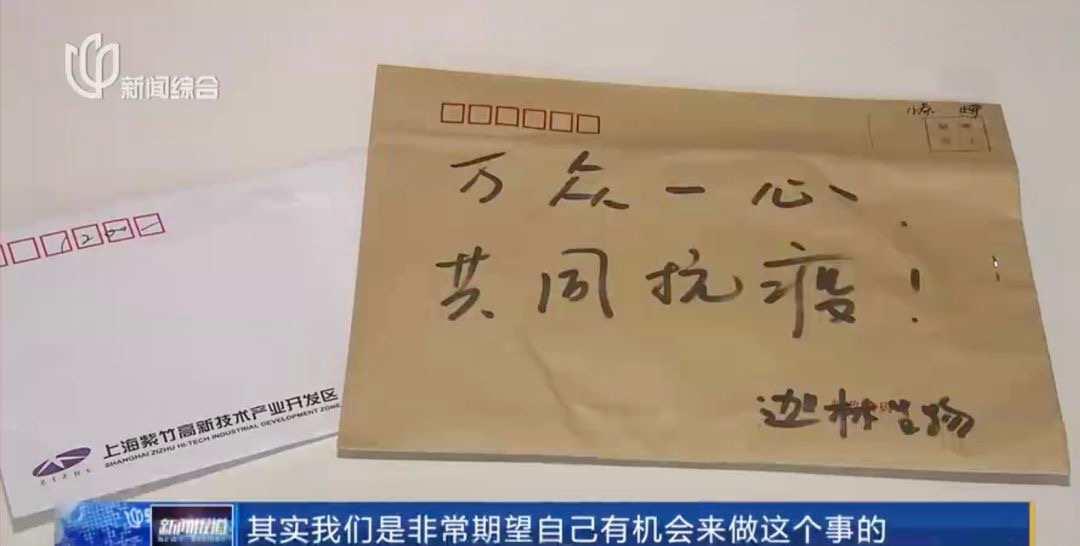 新闻综合
万众一心，
共同抗疫！
生物
1200
上海紫竹高新技术产业开发区
SHANGHAI ZIZHU HI-TECH INDUSTRIAL DEVELOPMENT ZONE
ZIZHU
新闻报道
其实我们是非常期望自己有机会来做这个事的